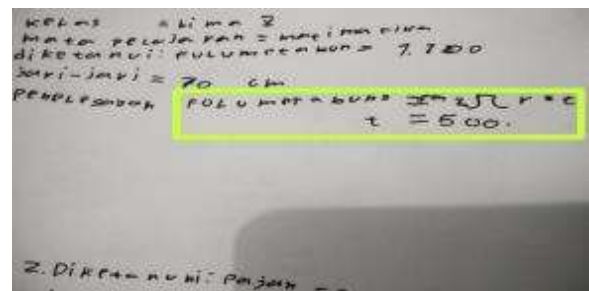 kelas = Lima 2
mata pelajaran = matimatika
diketahui: volume tabung = 7.700
jari-jari = 70 cm
penyelesaian volume tabung = π r² t
t = 500.
2. Diketahui: Panjang